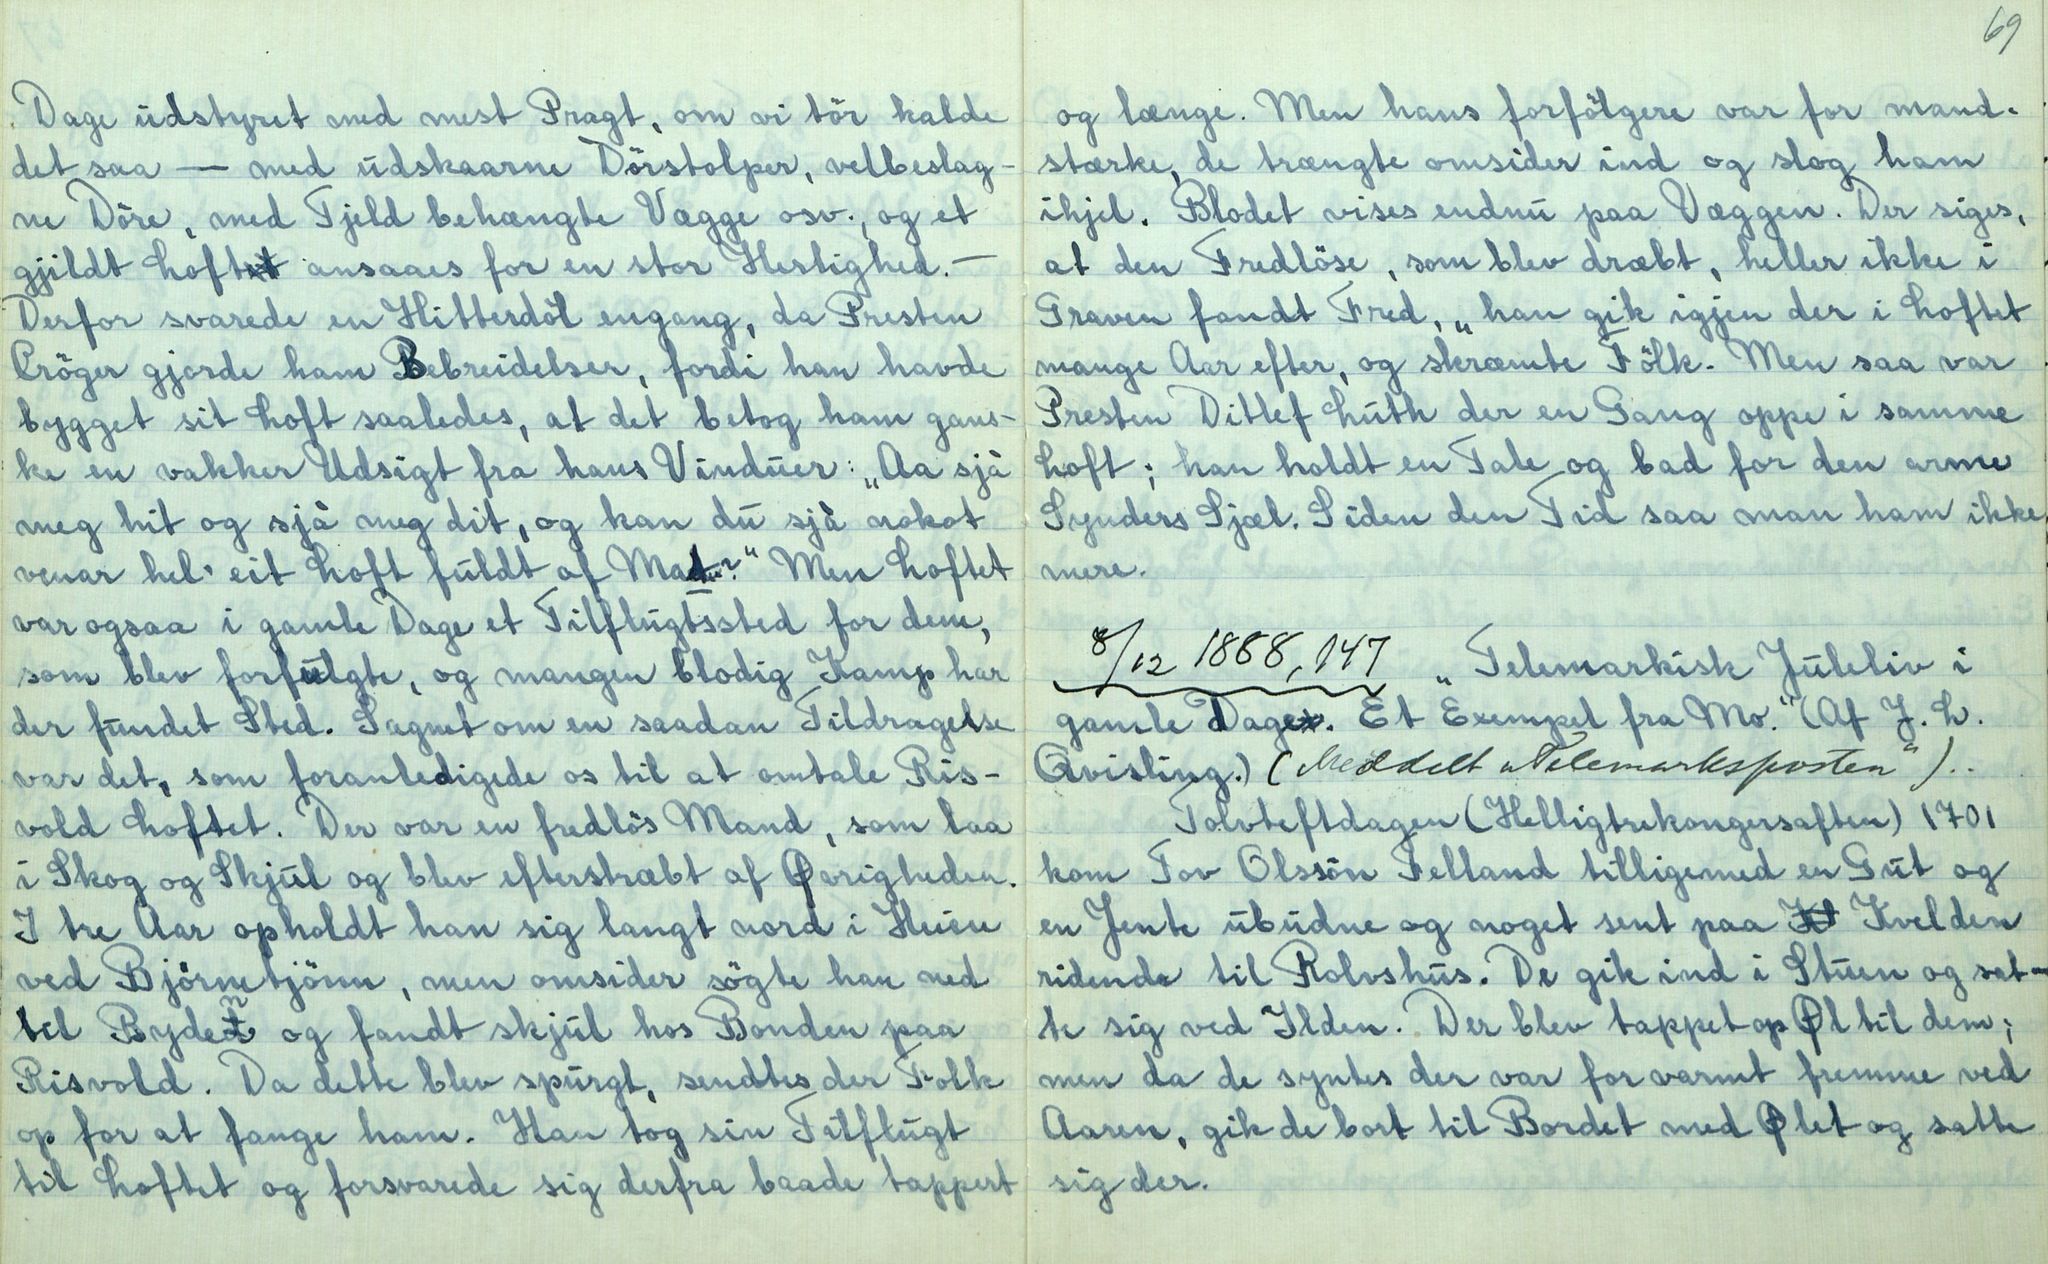 Dage udstyret med mest Pragt, om vi tör kalde
det saa — med udskaarne Dörstolper, velbeslag-
ne Döre, med Tjeld behængte Vægge osv., og et
gjildt Loft ansaaes for en stor Herlighed. —
Derfor svarede en Hitterdöl engang, da Presten
Cröger gjorde ham Bebreidelser, fordi han havde
bygget sit Loft saaledes, at det betog ham gans-
ke en vakker Udsigt fra hans Vinduer: „Aa sjå
meg hit og sjå meg dit, og kan du sjå nokot
venar hel' eit Loft fuldt af Mat?" Men Loftet
var ogsaa i gamle Dage et Tilflugtssted for dem,
som blev forfulgte, og mangen blodig Kamp har
der fundet Sted. Sagnet om en saadan Tildragelse
var det, som foranledigede os til at omtale Ris-
vold Loftet. Der var en fredlös Mand, som laa
i Skog og Skjul og blev efterstræbt af Øvrigheden.
I tre Aar opholdt han sig langt nord i Heien
ved Björnetjönn, men omsider sögte han ned
til Byden og fandt skjul hos Bonden paa
Risvold. Da dette blev spurgt, sendtes der Folk
op for at fange ham. Han tog sin Tilflugt
til Loftet og forsvarede sig derfra baade tappert
69
og længe. Men hans forfölgere var for mand-
stærke, de trængte omsider ind og slog ham
ihjel. Blodet vises endnu paa Væggen. Der siges,
at den Fredlöse, som blev dræbt, heller ikke i
Graven fandt Fred, „han gik igjen der i Loftet
mange Aar efter, og skræmte Fölk. Men saa var
Presten Ditlef Luth der en Gang oppe i samme
Loft; han holdt en Tale og bad for den arme
Synders Sjæl. Siden den Tid saa man ham ikke
mere.
8/12 1888, 147 „Telemarkisk Juleliv i
gamle Dage. Et Exempel fra Mo." (Af J. L.
Qvisling.) (Meddelt „Telemarksposten")..
Tolvteftdagen (Helligtrekongersaften) 1701
kom Tov Olssön Felland tilligemed en Gut og
en Jente ubudne og noget sent paa Kvelden
ridende til Rolvshus. De gik ind i Stuen og sat-
te sig ved Ilden. Der blev tappet op Øl til dem;
men da de syntes der var for varmt fremme ved
Aaren, gik de bort til Bordet med Ølet og satte
sig der.